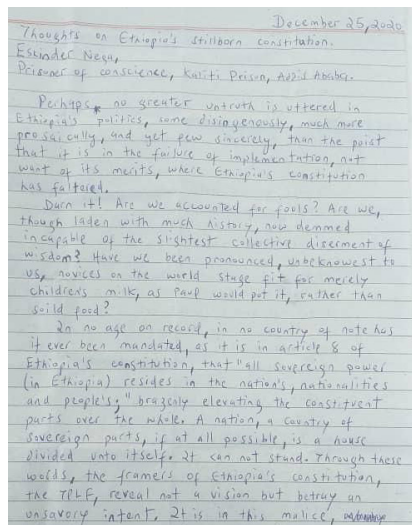 December 25, 2020
Thoughts on Ethiopia's Stillborn constitution.
Eskinder Nega,
Prisoner of conscience, Kaliti Prison, Addis Ababa.
Perhaps, no greater untruth is uttered in
Ethiopia's politics, some disingenously, much more
prosaically, and yet few sincerely, than the point
that it is in the failure of implementation, not
want of its merits, where Ethiopia's constitution
has faltered.
Darn it! Are we accounted for fools? Are we,
though laden with much history, now demmed
incapable of the slightest collective diserment of
wisdom? Have we been pronounced, unbeknowest to
us, novices on the world stage fit for merely
children's milk, as Paul would put it, rather than
soild food?
In no age on record, in no country of note has
it ever been mandated, as it is in article 8 of
Ethiopia's constitution, that "all sovereign power
(in Ethiopia) resides in the nation's, nationalities
and people's;" brazenly elevating the constituent
parts over the whole. A nation, a country of
sovereign parts, if at all possible, is a house
divided unto itself. It can not stand. Through these
words, the framers of Ethiopia's constitution,
the TPLF, reveal not a vision but betray an
unsavory intent. It is in this malice,